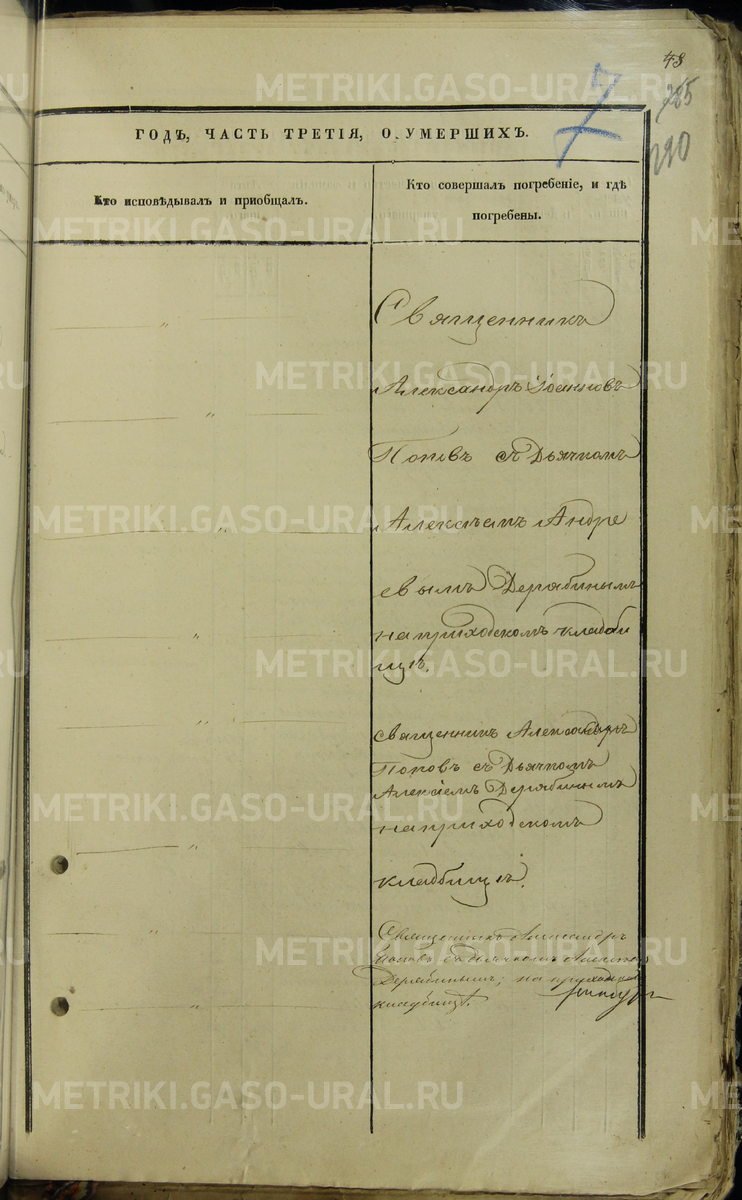 48
285
290
7
ГОДЪ, ЧАСТЬ ТРЕТІЯ, О УМЕРШИХЪ.
Кто исповѣдывалъ и пріобщалъ.
Кто совершалъ погребеніе, и гдѣ
погребены.
Священникъ
Александръ Іоанновъ
Поповъ съ Дьячкомъ
Алексѣемъ Андре
евымъ Дерябинымъ
на приходскомъ кладби
щѣ.
священникъ Александръ
Поповъ съ Дьячкомъ
Алексіемъ Дерябинымъ
на приходскомъ
кладбищѣ.
Священникъ Александръ
Поповъ съ дьячкомъ
Дерябинымъ; на приходском
кладбищѣ.
METRIKI.GASO-URAL.RU